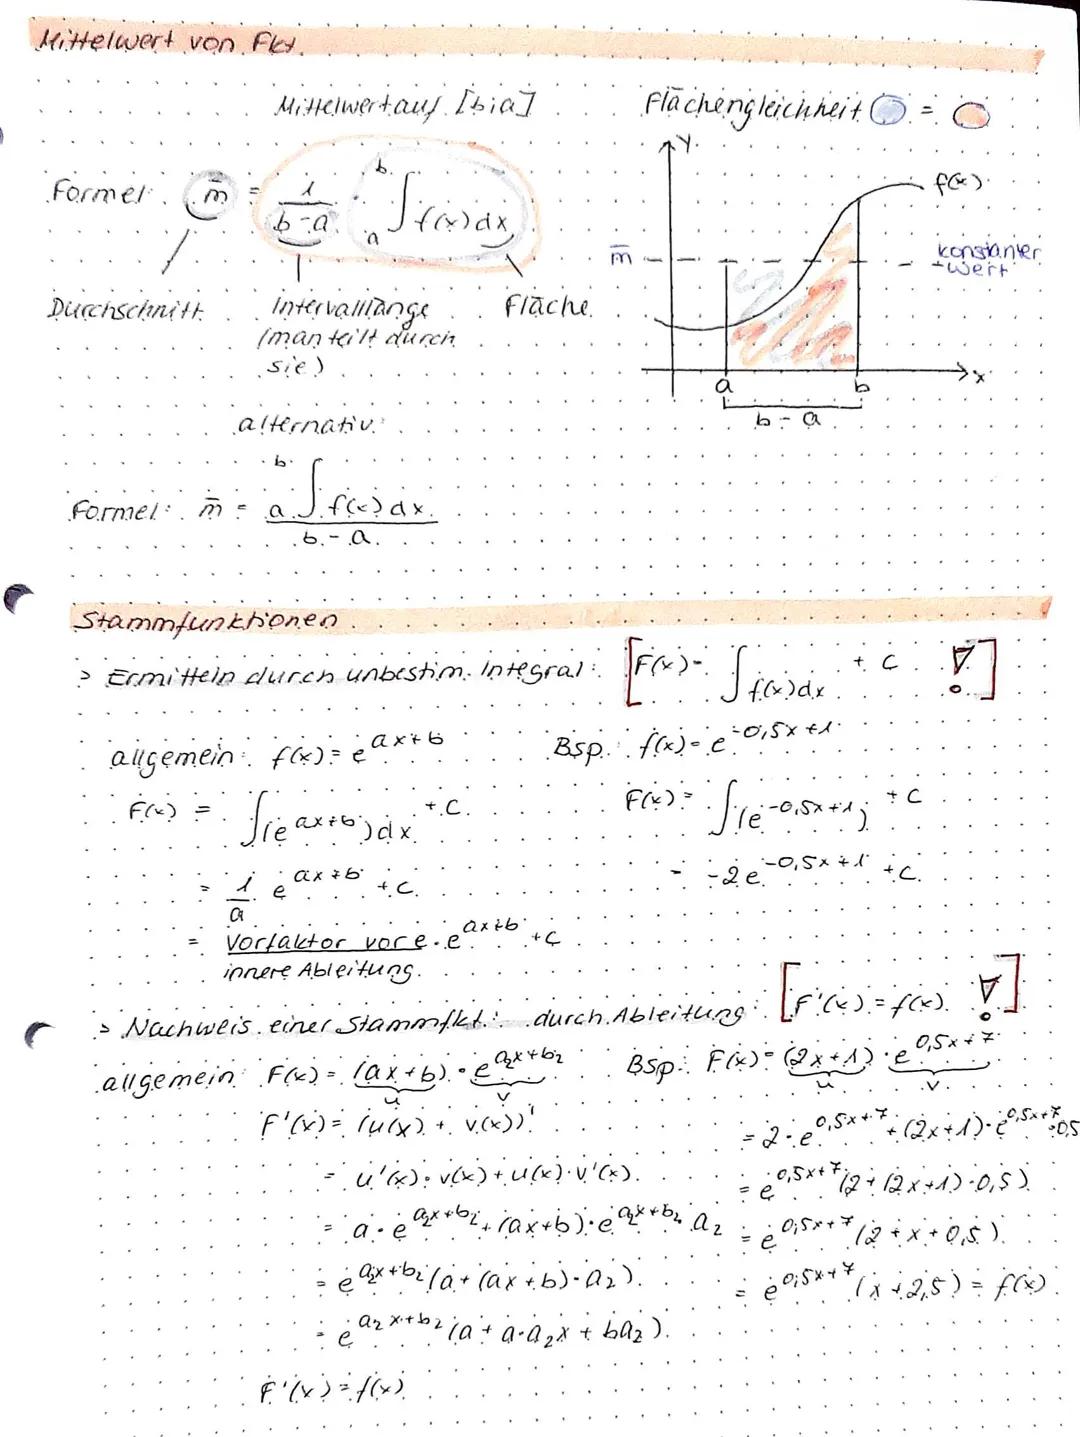 Mittelwert von Fkt.
Mittelwert auf [b;a]
Flächengleichheit =
Formel: m̄ = 1/(b-a) · a∫b f(x)dx
Durchschnitt
Intervalllänge
(man teilt durch
sie)
Fläche
y
f(x)
m̄
konstanter
Wert
a b x
b - a
alternativ:
Formel: m̄ = (a∫b f(x)dx)/(b-a)
Stammfunktionen
> Ermitteln durch unbestim. Integral: [F(x) = ∫f(x)dx + c !]
allgemein: f(x) = e^(ax+b)
F(x) = ∫(e^(ax+b))dx + c
= 1/a e^(ax+b) + c
= Vorfaktor vor e/innere Ableitung · e^(ax+b) + c
Bsp.: f(x) = e^(-0,5x+1)
F(x) = ∫(e^(-0,5x+1)) + c
= -2e^(-0,5x+1) + c
> Nachweis einer Stammfkt.: durch Ableitung: [F'(x) = f(x) !]
allgemein: F(x) = (ax+b) · e^(a₂x+b₂)
u v
F'(x) = (u(x) + v(x))'
= u'(x) · v(x) + u(x) · v'(x)
= a · e^(a₂x+b₂) + (ax+b) · e^(a₂x+b₂) · a₂
= e^(a₂x+b₂) (a + (ax+b) · a₂)
= e^(a₂x+b₂) (a + a·a₂x + ba₂)
F'(x) = f(x)
Bsp.: F(x) = (2x+1) · e^(0,5x+7)
u v
= 2 · e^(0,5x+7) + (2x+1) · e^(0,5x+7) · 0,5
= e^(0,5x+7) (2 + (2x+1) · 0,5)
= e^(0,5x+7) (2 + x + 0,5)
= e^(0,5x+7) (x + 2,5) = f(x)